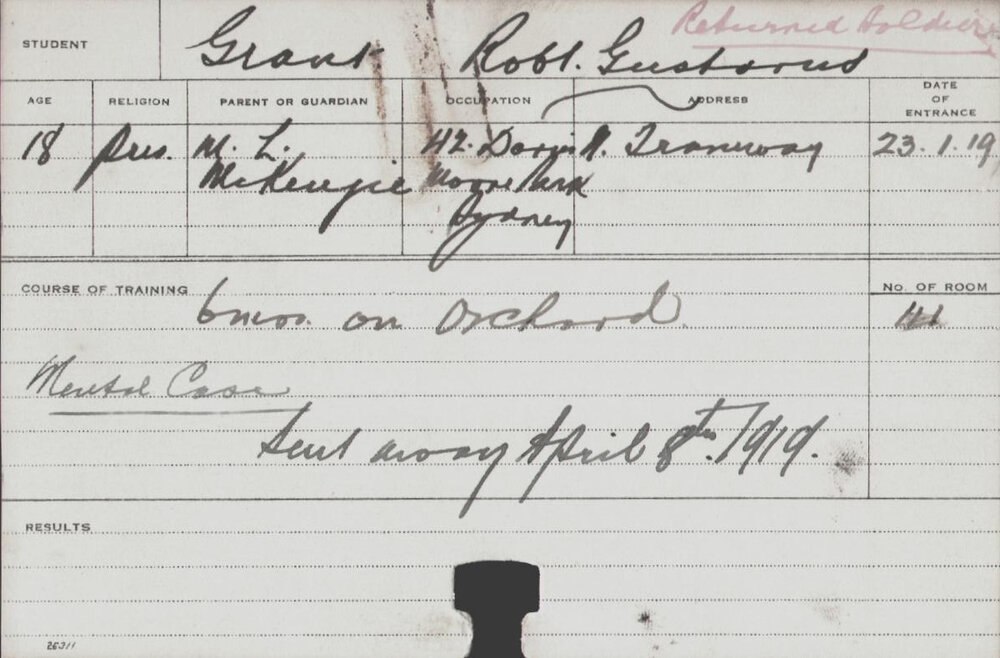 Returned Soldier
STUDENT Grant Robt. Gustavus
AGE RELIGION PARENT OR GUARDIAN OCCUPATION ADDRESS DATE OF ENTRANCE
18 Pres. M. L. 42. Tramway 23.1.19
McKenzie Moore Park
Sydney
COURSE OF TRAINING 6 mos. on Orchard. No. OF ROOM
41
Mental Case
Sent away April 8th. 1919.
RESULTS